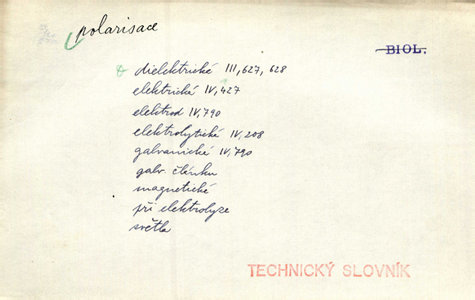 polarisace
BIOL.
dielektrické III, 627, 628
elektrické IV, 427
elektrod IV, 790
elektrolytické IV, 208
galvanické IV, 790
galv. článku
magnetické
při elektrolyse
světla
TECHNICKÝ SLOVNÍK